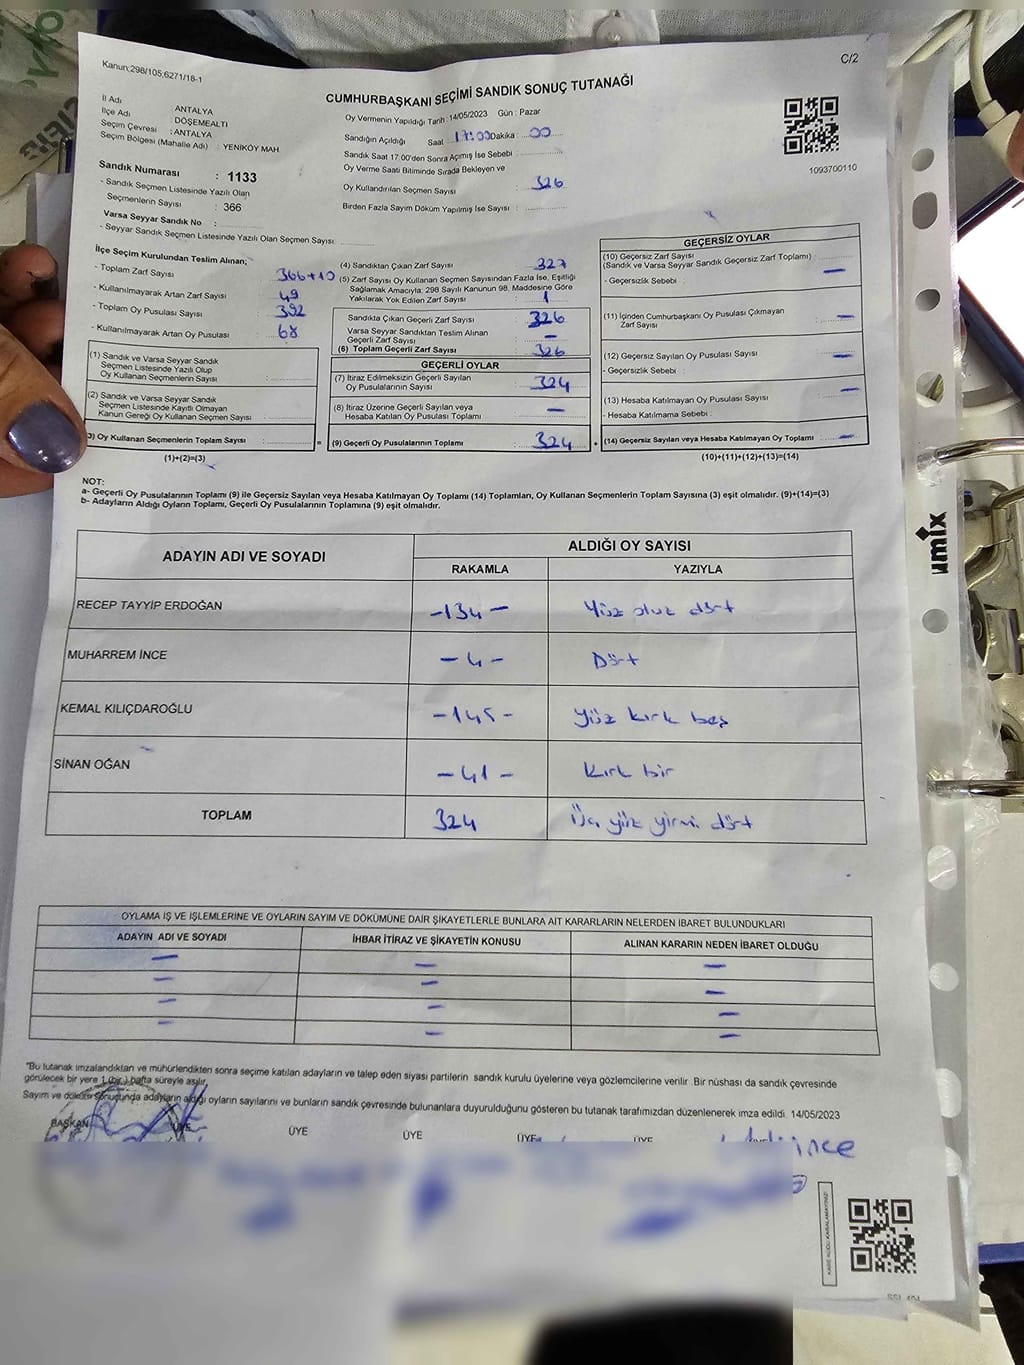 Kanun:298/105;6271/18-1
C/2
CUMHURBAŞKANI SEÇİMİ SANDIK SONUÇ TUTANAĞI
İl Adı : ANTALYA
İlçe Adı : DÖŞEMEALTI
Seçim Çevresi : ANTALYA
Seçim Bölgesi (Mahalle Adı) : YENİKÖY MAH.
Sandık Numarası : 1133
- Sandık Seçmen Listesinde Yazılı Olan
Seçmenlerin Sayısı : 366
Varsa Seyyar Sandık No :
- Seyyar Sandık Seçmen Listesinde Yazılı Olan Seçmen Sayısı:
Oy Vermenin Yapıldığı Tarih :14/05/2023 Gün : Pazar
Sandığın Açıldığı Saat 17:00 Dakika : 00
Sandık Saat 17.00'den Sonra Açımış İse Sebebi :
Oy Verme Saati Bitiminde Sırada Bekleyen ve
Oy Kullandırılan Seçmen Sayısı : 326
Birden Fazla Sayım Döküm Yapılmış İse Sayısı :
1093700110
İlçe Seçim Kurulundan Teslim Alınan;
- Toplam Zarf Sayısı : 366+10
- Kullanılmayarak Artan Zarf Sayısı : 49
- Toplam Oy Pusulası Sayısı : 392
- Kullanılmayarak Artan Oy Pusulası : 68
(1) Sandık ve Varsa Seyyar Sandık
Seçmen Listesinde Yazılı Olup
Oy Kullanan Seçmenlerin Sayısı :
(2) Sandık ve Varsa Seyyar Sandık
Seçmen Listesinde Kayıtlı Olmayan
Kanun Gereği Oy Kullanan Seçmen Sayısı :
3) Oy Kullanan Seçmenlerin Toplam Sayısı : =
(1)+(2)=(3)
(4) Sandıktan Çıkan Zarf Sayısı : 327
(5) Zarf Sayısı Oy Kullanan Seçmen Sayısından Fazla İse, Eşitliği
Sağlamak Amacıyla; 298 Sayılı Kanunun 98. Maddesine Göre
Yakılarak Yok Edilen Zarf Sayısı : 1
Sandıkta Çıkan Geçerli Zarf Sayısı : 326
Varsa Seyyar Sandıktan Teslim Alınan
Geçerli Zarf Sayısı : —
(6) Toplam Geçerli Zarf Sayısı : 326
GEÇERLİ OYLAR
(7) İtiraz Edilmeksizin Geçerli Sayılan
Oy Pusulalarının Sayısı : 324
(8) İtiraz Üzerine Geçerli Sayılan veya
Hesaba Katılan Oy Pusulası Toplamı : —
(9) Geçerli Oy Pusulalarının Toplamı : 324
GEÇERSİZ OYLAR
(10) Geçersiz Zarf Sayısı
(Sandık ve Varsa Seyyar Sandık Geçersiz Zarf Toplamı) : —
- Geçersizlik Sebebi :
(11) İçinden Cumhurbaşkanı Oy Pusulası Çıkmayan
Zarf Sayısı : —
(12) Geçersiz Sayılan Oy Pusulası Sayısı : —
- Geçersizlik Sebebi :
(13) Hesaba Katılmayan Oy Pusulası Sayısı : —
- Hesaba Katılmama Sebebi :
(14) Geçersiz Sayılan veya Hesaba Katılmayan Oy Toplamı : —
(10)+(11)+(12)+(13)=(14)
NOT:
a- Geçerli Oy Pusulalarının Toplamı (9) ile Geçersiz Sayılan veya Hesaba Katılmayan Oy Toplamı (14) Toplamları, Oy Kullanan Seçmenlerin Toplam Sayısına (3) eşit olmalıdır. (9)+(14)=(3)
b- Adayların Aldığı Oyların Toplamı, Geçerli Oy Pusulalarının Toplamına (9) eşit olmalıdır.
ADAYIN ADI VE SOYADI
ALDIĞI OY SAYISI
RAKAMLA YAZIYLA
RECEP TAYYİP ERDOĞAN -134- Yüz otuz dört
MUHARREM İNCE -4- Dört
KEMAL KILIÇDAROĞLU -145- yüz kırk beş
SİNAN OĞAN -41- Kırk bir
TOPLAM 324 Üç yüz yirmi dört
OYLAMA İŞ VE İŞLEMLERİNE VE OYLARIN SAYIM VE DÖKÜMÜNE DAİR ŞİKAYETLERLE BUNLARA AİT KARARLARIN NELERDEN İBARET BULUNDUKLARI
ADAYIN ADI VE SOYADI İHBAR İTİRAZ VE ŞİKAYETİN KONUSU ALINAN KARARIN NEDEN İBARET OLDUĞU
— — —
— — —
— — —
— — —
"Bu tutanak imzalandıktan ve mühürlendikten sonra seçime katılan adayların ve talep eden siyasi partilerin sandık kurulu üyelerine veya gözlemcilerine verilir. Bir nüshası da sandık çevresinde
görülecek bir yere 1 (bir) hafta süreyle asılır.
Sayım ve döküm sonucunda adayların aldığı oyların sayılarını ve bunların sandık çevresinde bulunanlara duyurulduğunu gösteren bu tutanak tarafımızdan düzenlenerek imza edildi. 14/05/2023
BAŞKAN ÜYE ÜYE ÜYE ÜYE ÜYE
ince
KARE KODU KARALAMAYINIZ!
umix